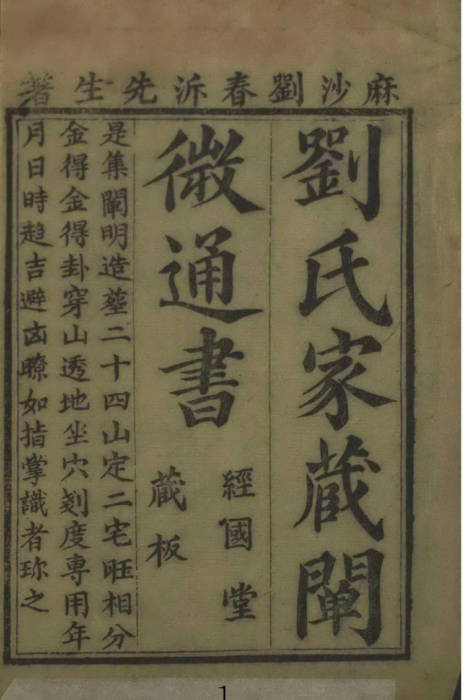 麻沙劉春沂先生著
劉氏家蔵闡
微通書
經國堂
蔵板
是集闡明造塟二十四山定二宅旺相分
金得金得卦穿山透地坐穴刻度專用年
月日時趋吉避凶瞭如指掌識者珎之
1